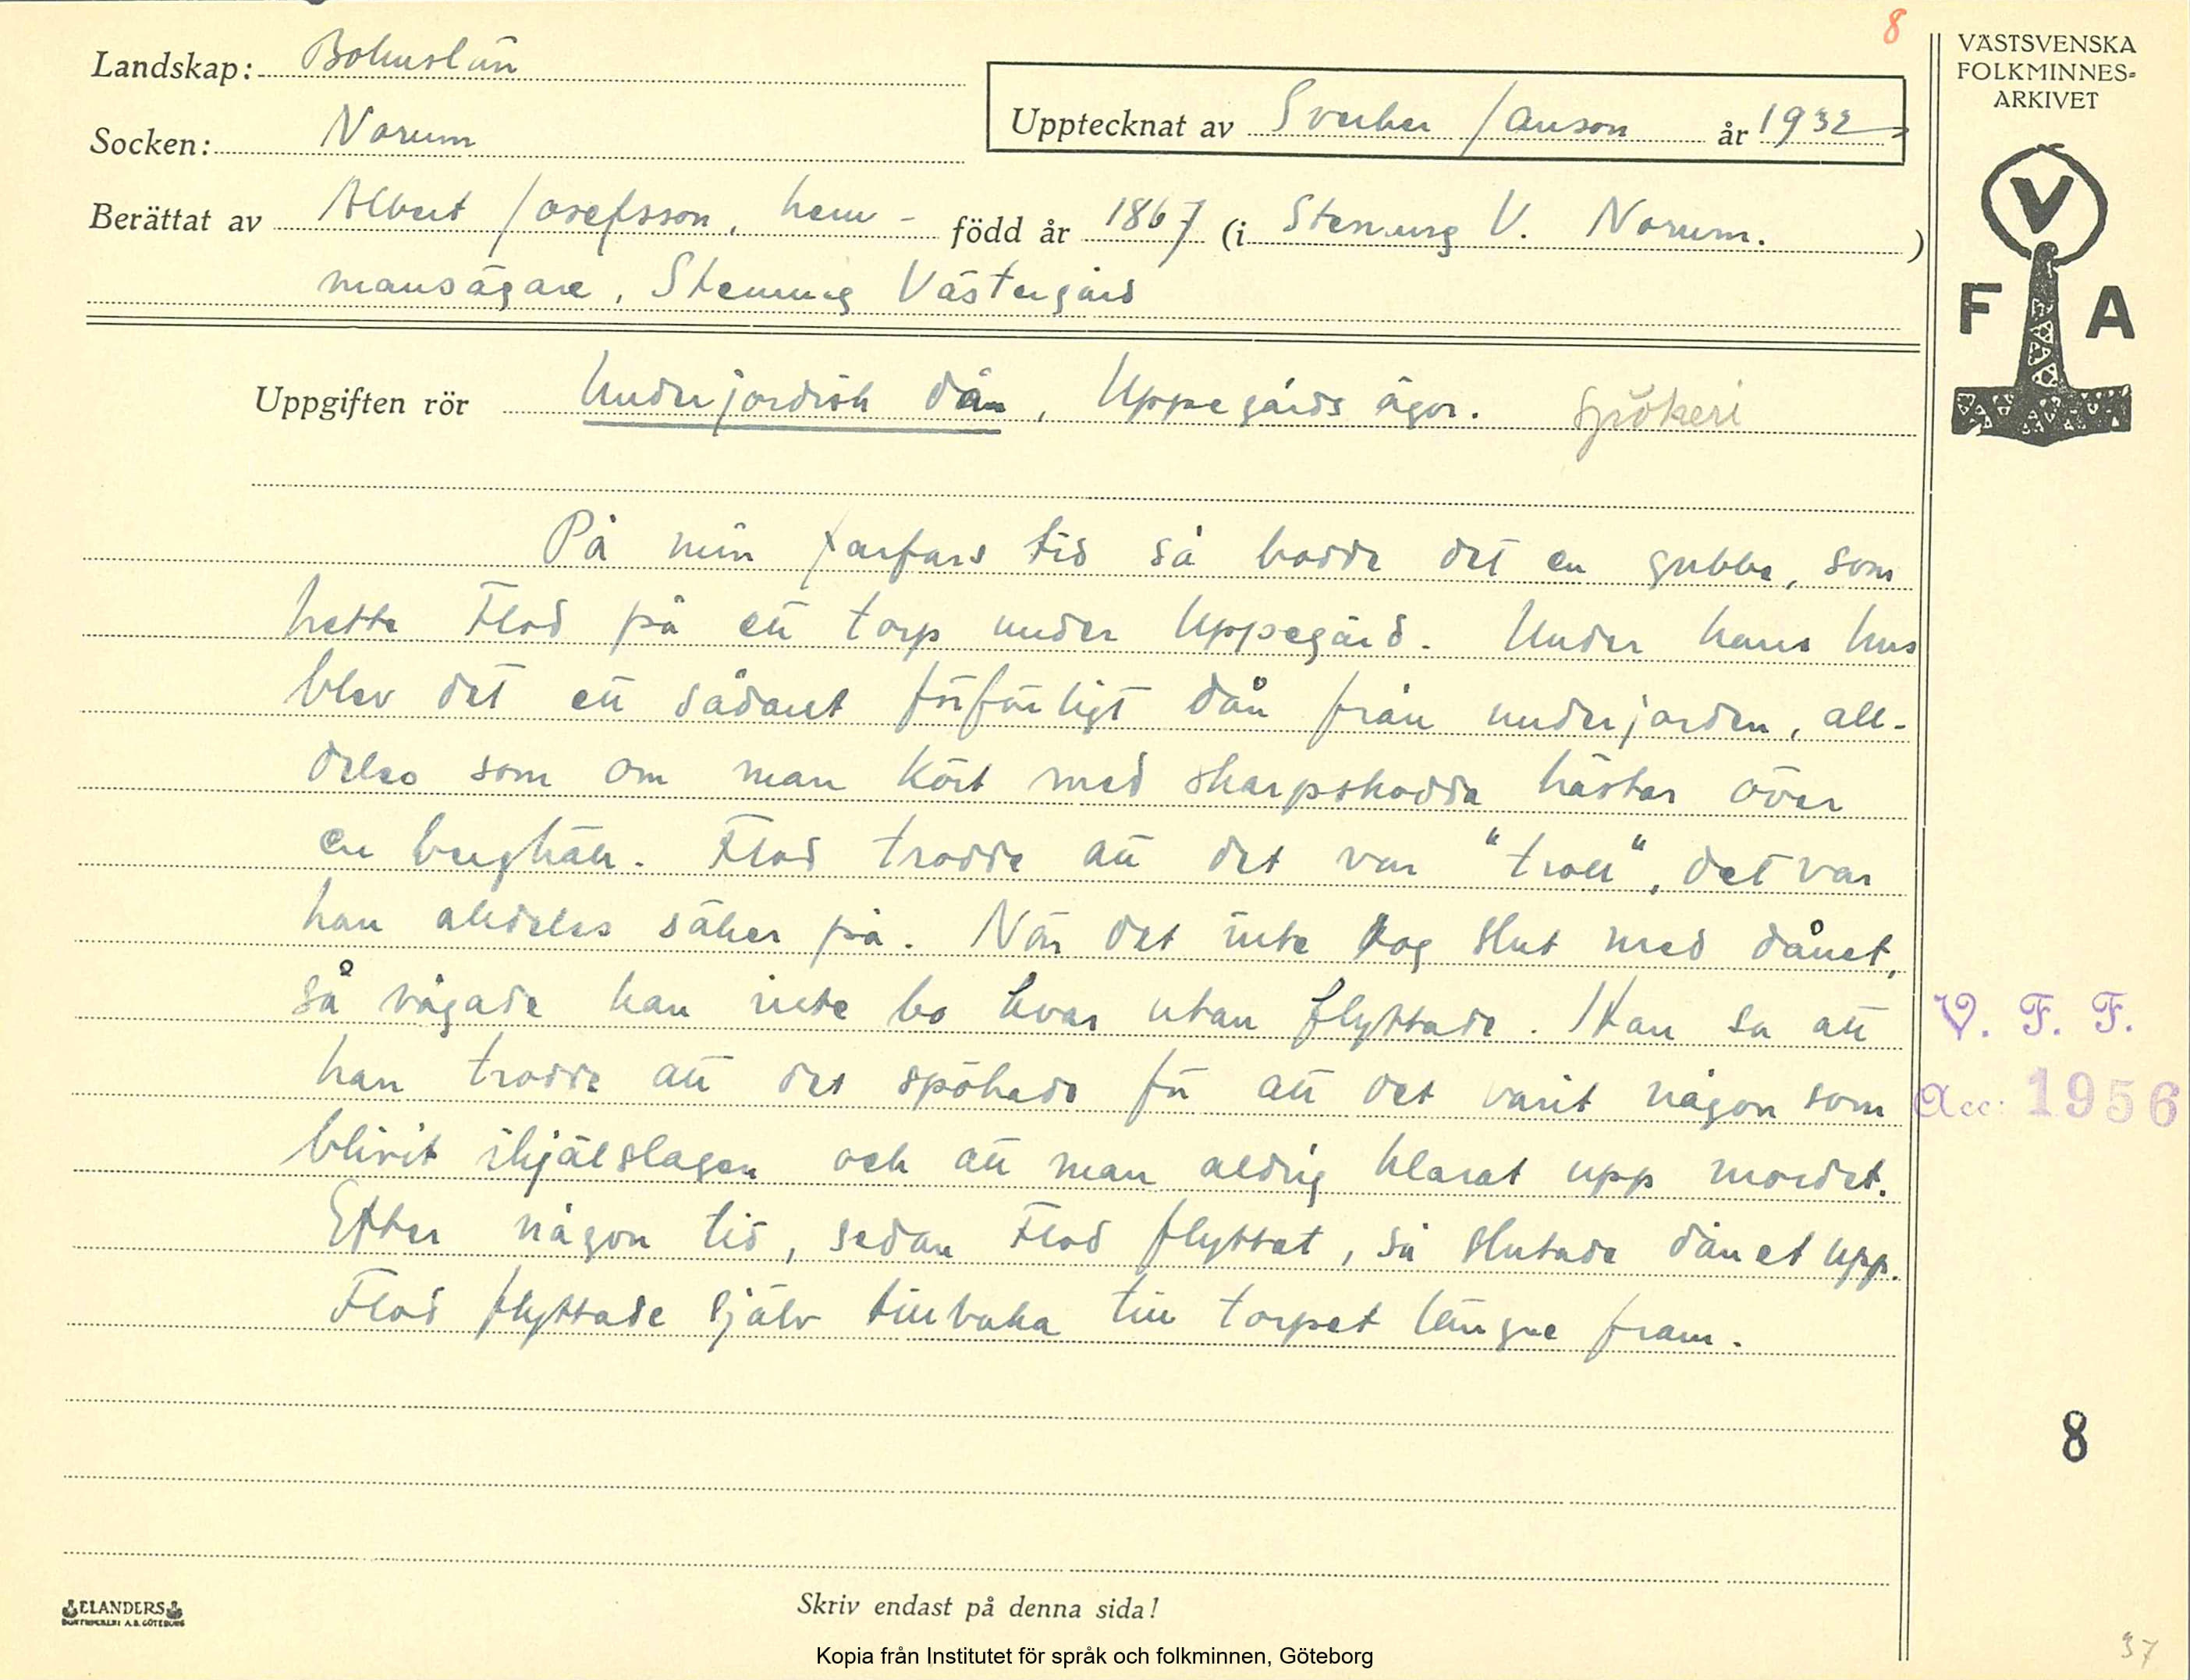 8
Landskap: Bohuslän
Socken: Norum
Upptecknat av Sverker Janson år 1932
Berättat av Albert Josefsson, hem- född år 1867 (i Stenung V. Norum.)
mansägare, Stenung Västergård
VÄSTSVENSKA
FOLKMINNES-
ARKIVET
V
F A
Uppgiften rör Underjordisk dån, Uppegårds ägor. Spökeri
På min farfars tid så bodde det en gubbe, som
hette Flod på ett torp under Uppegård. Under hans hus
blev det ett sådant förfärligt dån från underjorden, all-
deles som om man kört med skarpskodda hästar över
en berghäll. Flod trodde att det var "troll", det var
han alldeles säker på. När det inte tog slut med dånet,
så vågade han inte bo kvar utan flyttade. Han sa att
han trodde att det spökade för att det varit någon som
blivit ihjälslagen och att man aldrig klarat upp mordet.
Efter någon tid, sedan Flod flyttat, så slutade dånet upp.
Flod flyttade själv tillbaka till torpet längre fram.
V. F. F.
Acc: 1956
8
ELANDERS
BOKTRYCKERI A.B. GÖTEBORG
Skriv endast på denna sida!
Kopia från Institutet för språk och folkminnen, Göteborg
37